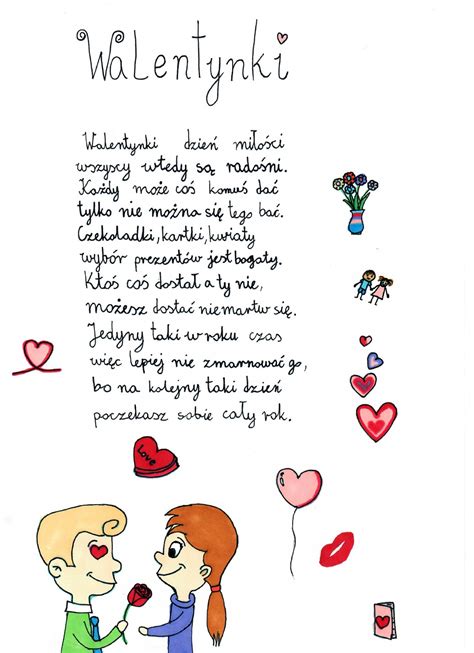 Walentynki
Walentynki dzień miłości
wszyscy wtedy są radośni.
Każdy może coś komuś dać
tylko nie można się tego bać.
Czekoladki, kartki, kwiaty
wybór prezentów jest bogaty.
Ktoś coś dostał a ty nie,
możesz dostać niemartw się.
Jedyny taki w roku czas
więc lepiej nie zmarnować go,
bo na kolejny taki dzień
poczekasz sobie cały rok.
Love